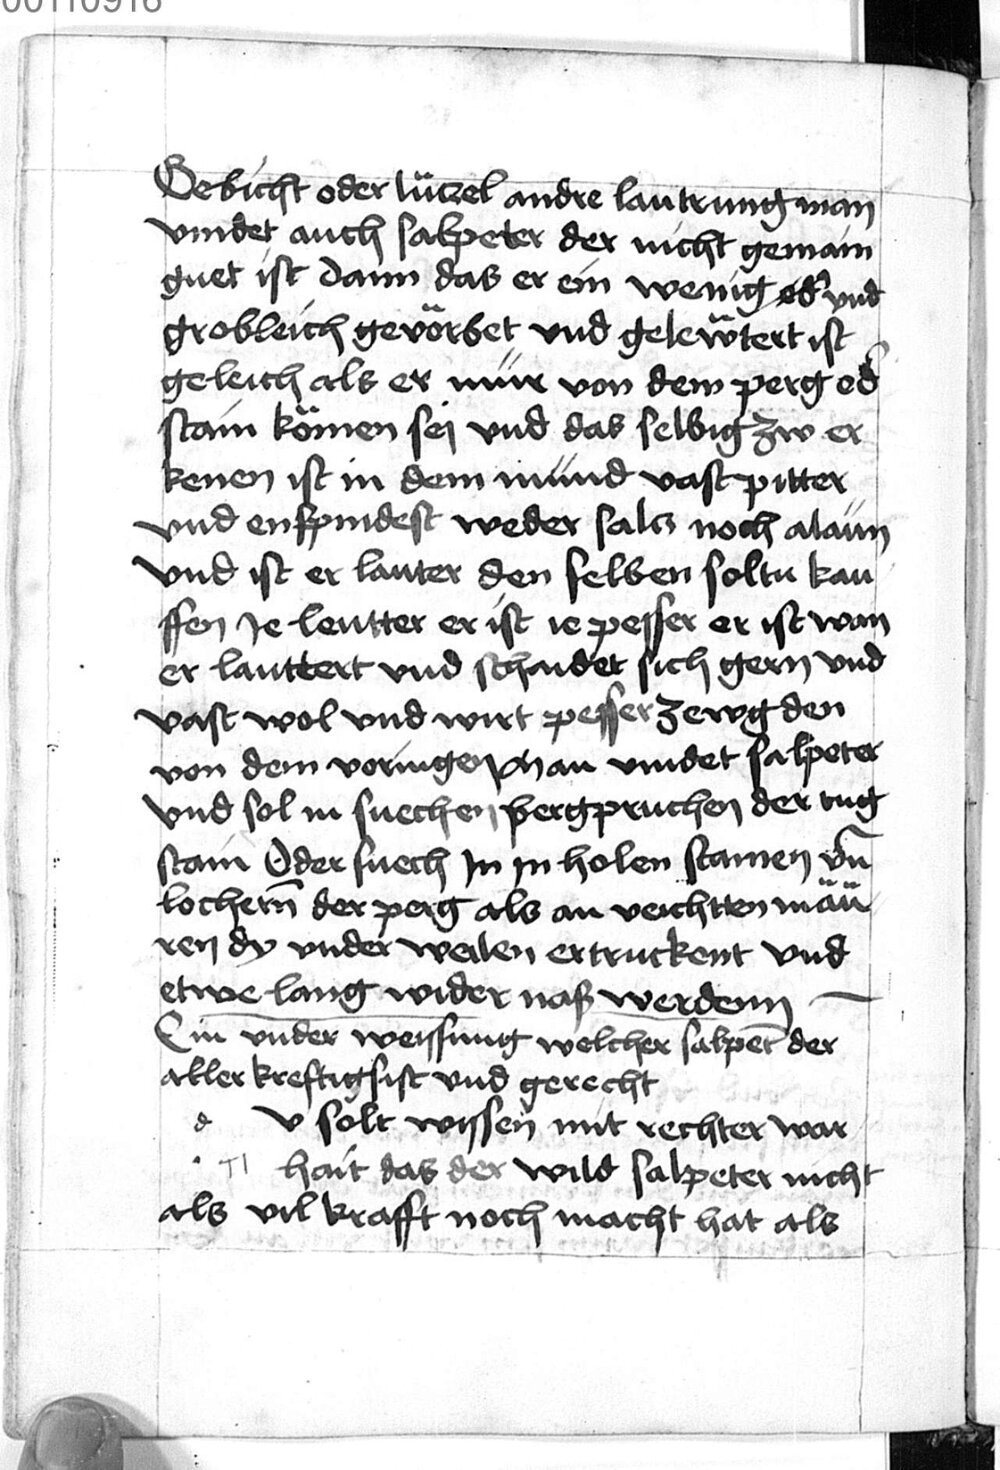 00110916
Gebicht oder lüczel andre lautrung man
vindet auch salpeter der nicht gemain
guet ist dann das er ein wenig od' vnd
grobleich gevörbet vnd gelewtert ist
geleich als er nür von dem perg od'
stain kömen seӱ vnd das selbig zw er
kenen ist in dem münd vast pitter
vnd enphindest weder salcz noch alaün
vnd ist er lauter den selben soltu kau
ffen Je leutter er ist ie pesser er ist wan
er lauttert vnd schaidet sich gern vnd
vast wol vnd wirt pesser zewg den
von dem voringen Man vindet salpeter
vnd sol in suechen pergpruchen der
stain Oder suech in in holen stainen vn̄
lochern̄ der perg als an veichten mäü
ren dy vnder weilen ertruckent vnd
etwe lang wider naß werdenn
Ein vnder weissung welcher salpet̄ der
aller kreftigsist vnd gerecht
d v solt wissen mit rechter war
hait das der wild salpeter nicht
als vil krafft noch macht hat als